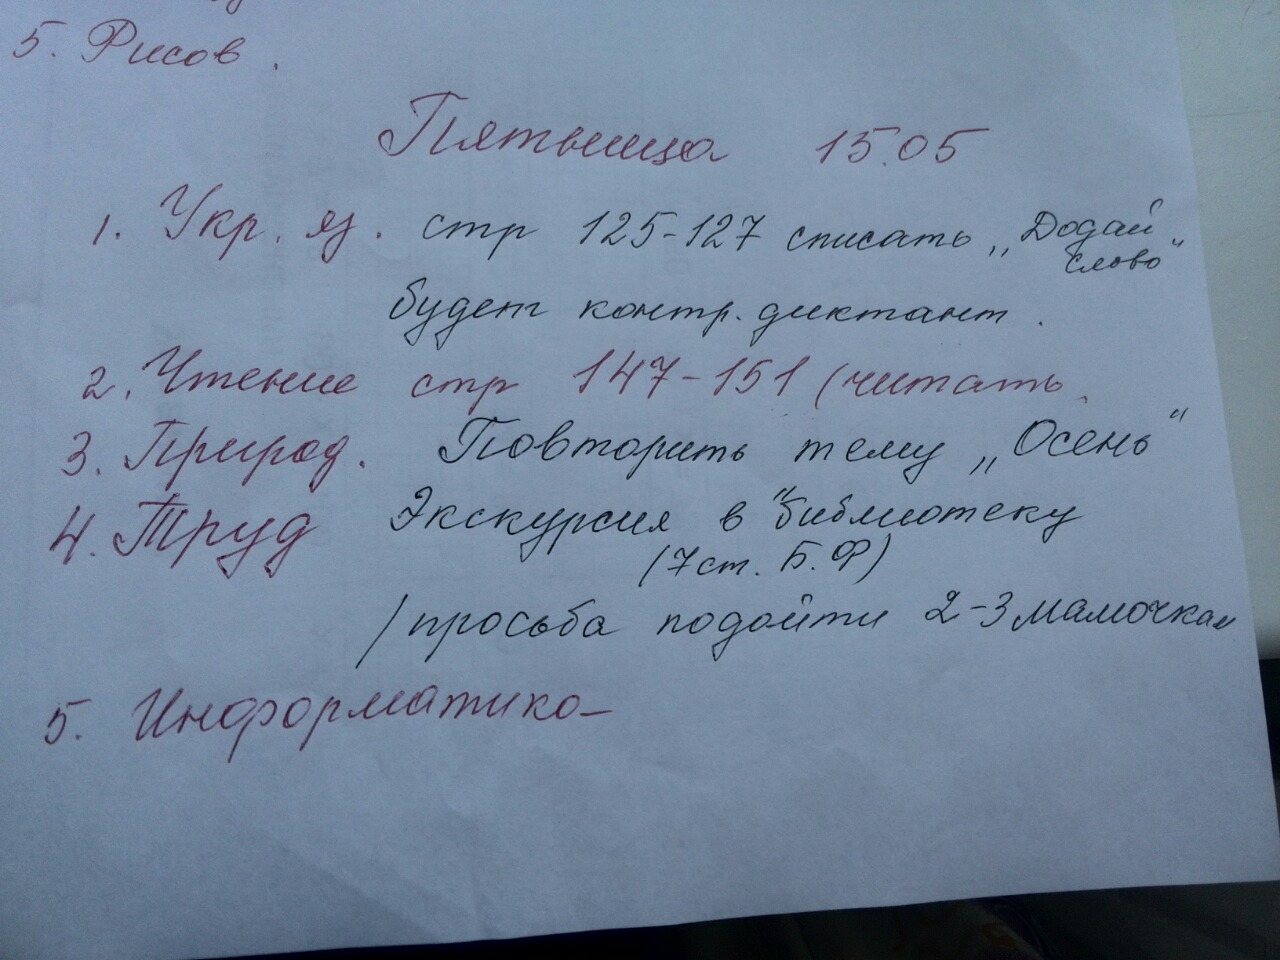 5. Рисов.
Пятница 15.05
1. Укр. яз. стр 125-127 списать „Додай
слово"
будет контр. диктант.
2. Чтение стр 147-151 (читать.
3. Природ. Повторить тему „Осень"
4. Труд Экскурсия в "библиотеку
(7 ст. Б. Ф)
/просьба подойти 2-3 мамочкам
5. Информатика-